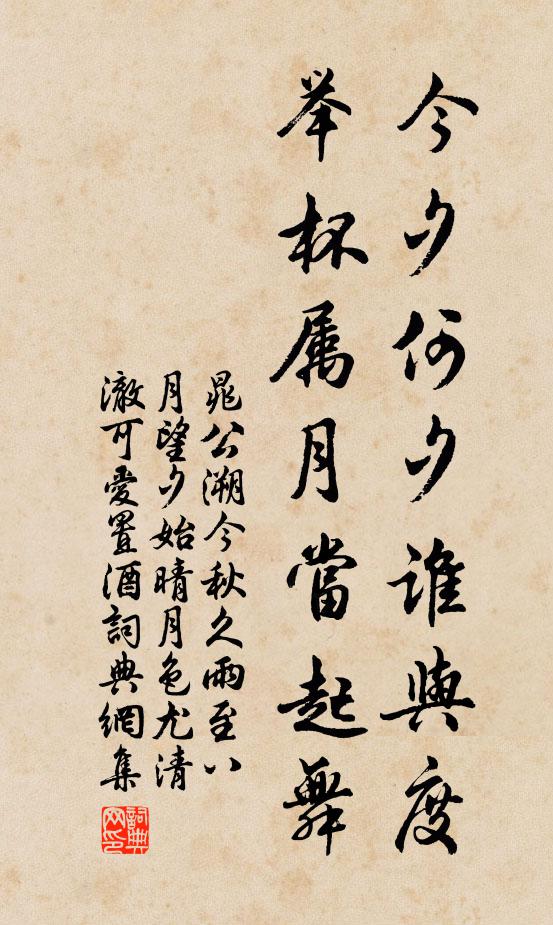 今夕何夕誰與度
举杯属月當起舞
晁公溯今秋久雨至八
月望夕始晴月色尤清
澈可愛置酒詞典網集
詞典网印